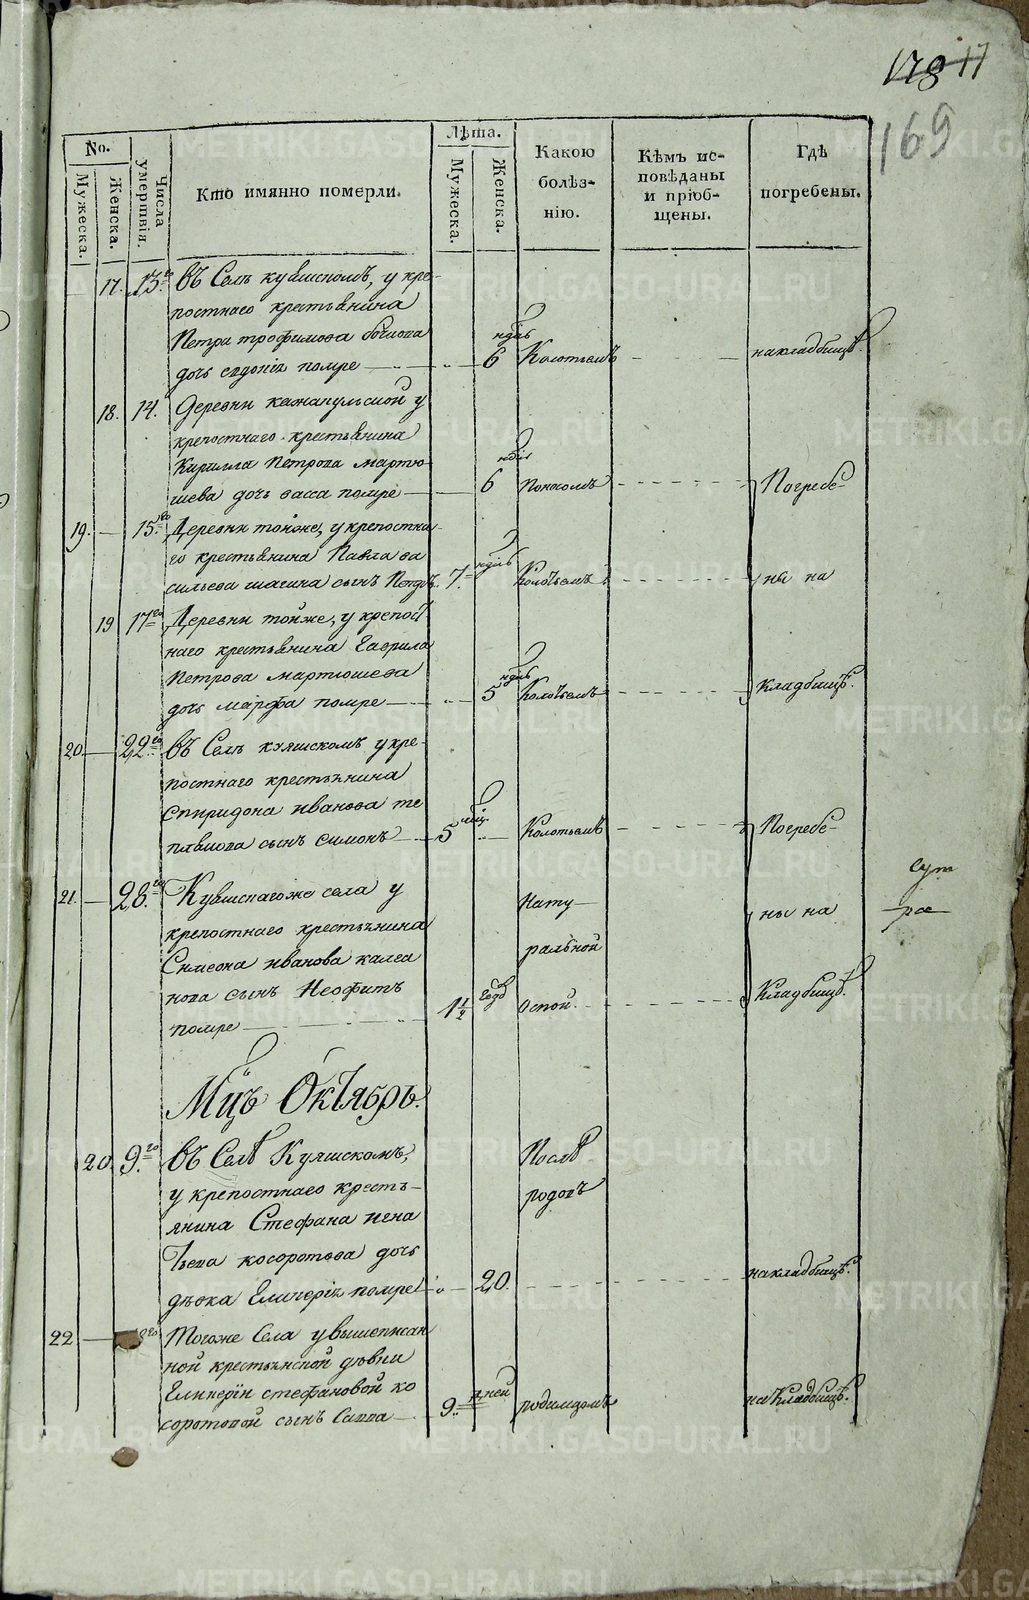 178 17
169
No.
Мужеска.
Женска.
Числа умертвія.
Кто имянно померли.
Лѣта.
Мужеска.
Женска.
Какою болѣз-нію.
Кѣмъ ис-повѣданы и пріоб-щены.
Гдѣ погребены.
17. 13.го въ Селѣ куяшскомъ, у кре-
постнаго крестьянина
Петра трофимова
дочь помре 6 ндѣль Колотьемъ на кладбищѣ.
18. 14. Деревни у
крепостнаго крестьянина
Кирилла Петрова мартю-
шева дочь васса помре 6 ндѣл Поносомъ Погребе-
19. 15.го Деревни тойже, у крепостна-
го крестьянина Павла ва
сильева шагина сынъ 7 ндѣль Колотьемъ ны на
19 17го Деревни тойже, у крепост
наго крестьянина Гаврила
Петрова мартюшева
дочь марфа помре 5 ндѣль Колотьемъ кладбищѣ.
20. 22.го въ Селѣ куяшскомъ у кре-
постнаго крестьянина
Спиридона иванова те
сынъ симонъ 5 мѣц. Колотьемъ Погребе-
21. 28.го Куяшскагоже села у Нату-
крепостнаго крестьянина ны на
Симеона иванова калга ральной
нова сынъ Неофитъ 1 1/2 Года оспой. Кладбищѣ.
помре
Мцъ Октябрь.
20. 9.го въ Селѣ Куяшскомъ, Послѣ
у крепостнаго кресть- родовъ
янина Стефана игна
тьева косоротова дочь
дѣвка Еликерія помре 20. на кладбищѣ.
22 Тогоже Села у вышеписан
ной крестьянской дѣвки
Еликеріи стефановой ко
соротовой сынъ Савва 9. дней родимцомъ на Кладбищѣ.
METRIKI.GASO-URAL.RU